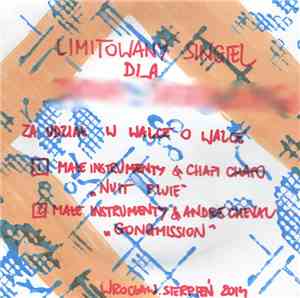 LIMITOWANY SINGIEL
DLA
ZA UDZIAŁ W WALCE O WALCE
1 MAŁE INSTRUMENTY & CHAPI CHAPO
„NUIT PLUIE"
2 MAŁE INSTRUMENTY & ANDRE CHEVAL
„GONGMISSION"
WROCŁAW, SIERPIEŃ 2014